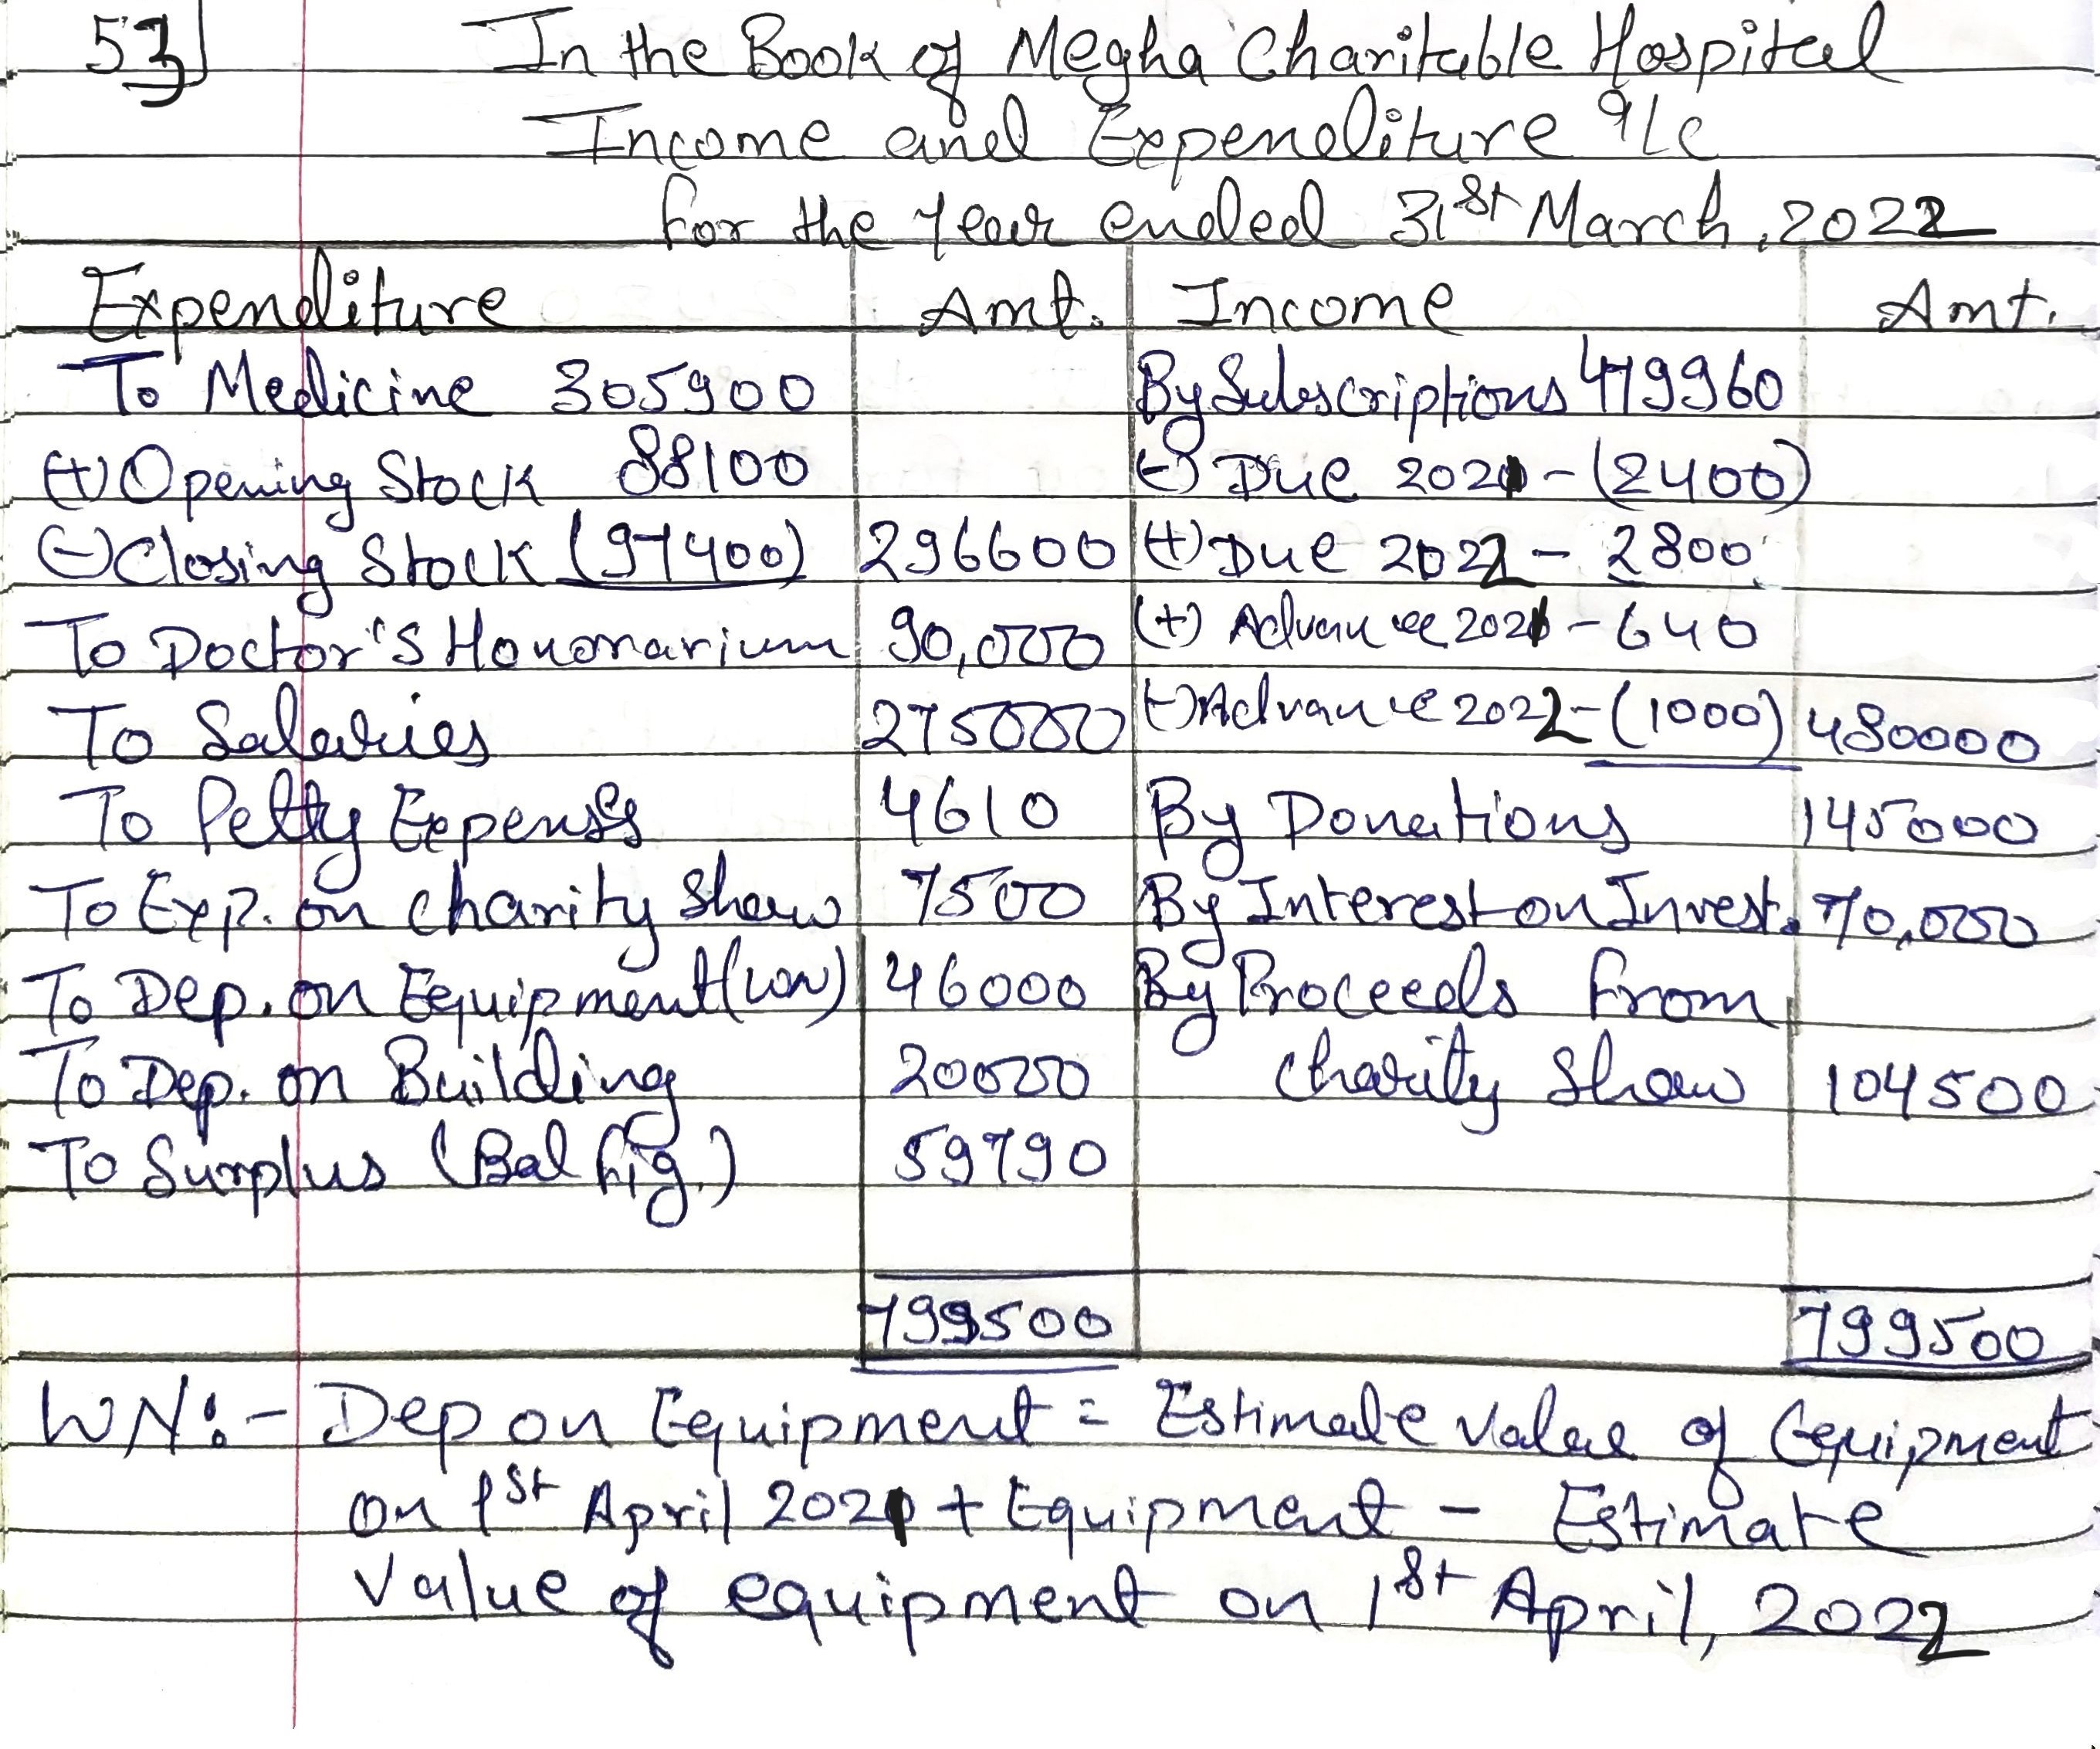 53
In the Book of Megha Charitable Hospital
Income and Expenditure a/c
for the Year ended 31st March, 2022
Expenditure Amt. Income Amt.
To Medicine 305900 By Subscriptions 479960
(+) Opening Stock 88100 (-) Due 2021 - (2400)
(-) Closing Stock (97400) 296600 (+) Due 2022 - 2800
To Doctor's Honorarium 90,000 (+) Advance 2021 - 640
To Salaries 275000 (-) Advance 2022 - (1000) 480000
To Petty Expenses 4610 By Donations 145000
To Exp. on charity Show 7500 By Interest on Invest. 70,000
To Dep. on Equipment (WN) 46000 By Proceeds from
To Dep. on Building 20000 charity Show 104500
To Surplus (Bal fig.) 59790
799500 799500
WN:- Dep on Equipment = Estimate Value of Equipment
on 1st April 2021 + Equipment - Estimate
Value of equipment on 1st April, 2022